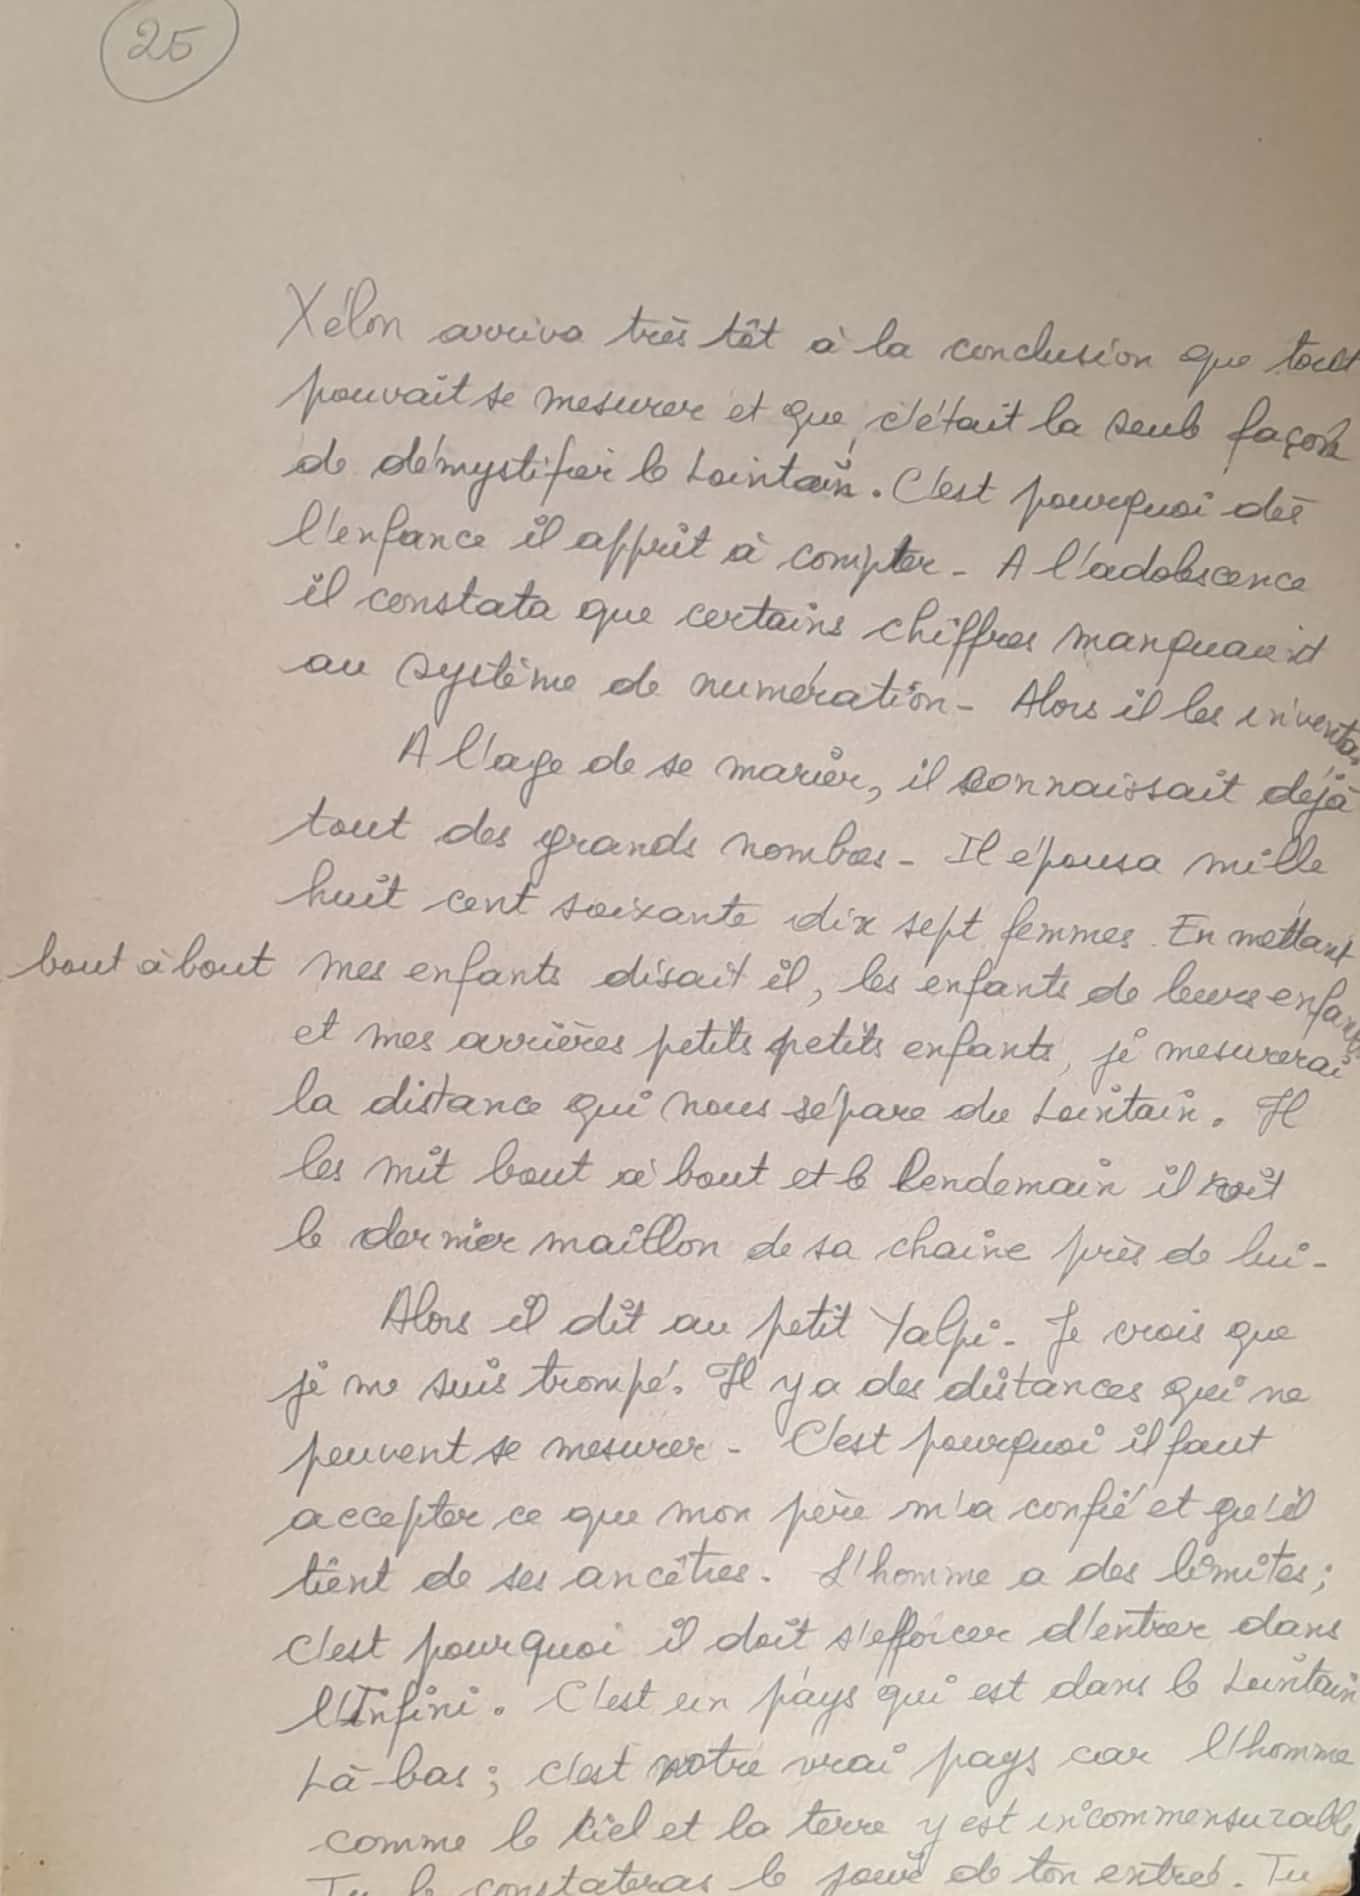 25
Xélon arriva très tôt à la conclusion que tout
pouvait se mesurer et que c'était la seule façon
de démystifier le Lointain. C'est pourquoi dès
l'enfance il apprit à compter - A l'adolescence
il constata que certains chiffres manquaient
au système de numération - Alors il les inventa.
A l'age de se marier, il connaissait déjà
tout des grands nombres - Il épousa mille
huit cent soixante dix sept femmes. En mettant
bout à bout mes enfants disait il, les enfants de leurs enfants
et mes arrières petits petits enfants, je mesurerai
la distance qui nous sépare du Lointain. Il
les mit bout à bout et le lendemain il vit
le dernier maillon de sa chaine près de lui -
Alors il dit au petit Yalpi - Je crois que
je me suis trompé. Il y a des distances qui ne
peuvent se mesurer - C'est pourquoi il faut
accepter ce que mon père m'a confié et qu'il
tient de ses ancêtres. L'homme a des limites ;
c'est pourquoi il doit s'efforcer d'entrer dans
l'Infini. C'est un pays qui est dans le Lointain
Là-bas ; c'est notre vrai pays car l'homme
comme le Ciel et la terre y est incommensurable
Tu le constateras le jour de ton entrée. Tu